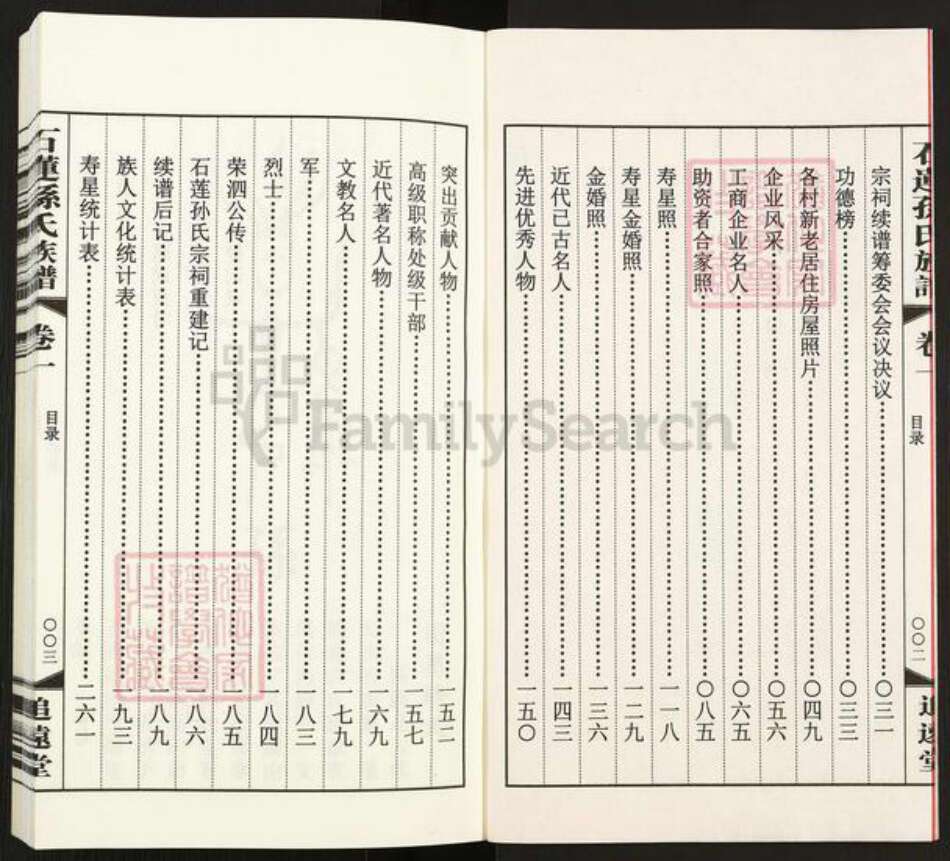 石蓮孫氏族譜
卷一
目录
〇〇二
追遠堂
宗祠续谱筹委会会议决议……〇三一
功德榜……〇三三
各村新老居住房屋照片……〇四九
企业风采……〇五六
工商企业名人……〇六五
助资者合家照……〇八五
寿星照……一一八
寿星金婚照……一二九
金婚照……一三六
近代已古名人……一四三
先进优秀人物……一五〇
突出贡献人物……一五二
高级职称处级干部……一五七
近代著名人物……一六九
文教名人……一七九
军……一八三
烈士……一八四
荣泗公传……一八五
石莲孙氏宗祠重建记……一八六
续谱后记……一八九
族人文化统计表……一九三
寿星统计表……二六一
石蓮孫氏族譜
卷一
目录
〇〇三
追遠堂
FamilySearch